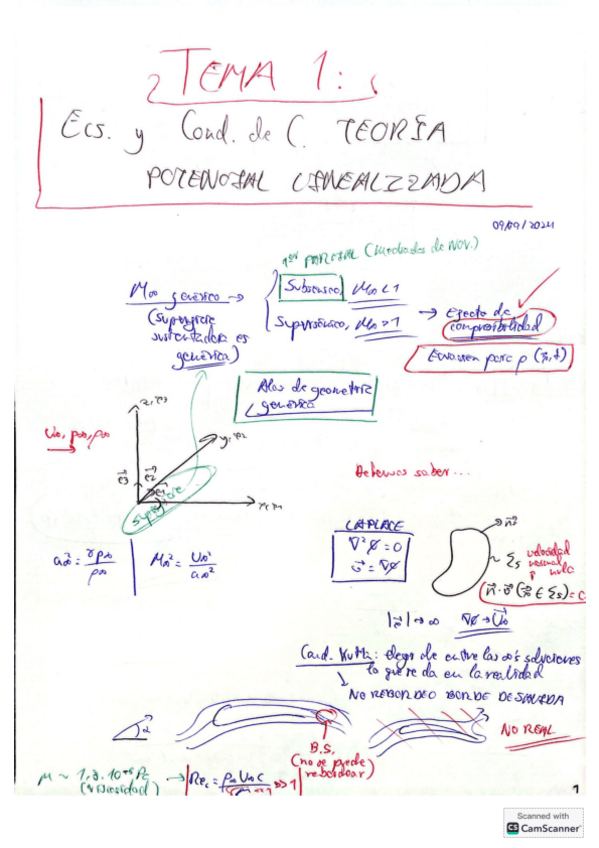 TEMA 1:
Ecs. y Cond. de C. TEORÍA
POTENCIAL LINEALIZADA
09/09/2024
1er PARCIAL (Mediados de Nov.)
M∞ genérico →
Subsónico, M∞<1
(Superficie
sustentadora es
genérica)
Supersónico, M∞>1
→ Efecto de
compresibilidad
Ecuación para ρ (x⃗,t)
Alas de geometría
genérica
z, x₃
y, x₂
U∞, p∞, ρ∞
x, x₁
superficie
Debemos saber...
a∞² = γp∞/ρ∞
M∞² = U∞²/a∞²
LAPLACE
∇²Ø = 0
v⃗ = ∇Ø
n⃗
Σs
velocidad
normal
nula
n⃗·v⃗ (x⃗ ∈ Σs) = 0
|x⃗| → ∞ ∇Ø → U⃗∞
Cond. Kutta: elegir de entre las ∞'s soluciones
la que se da en la realidad
↳ NO REBORDEO BORDE DE SALIDA
α
B.S.
(no se puede
rebordear)
NO REAL
(viscosidad)
→ Rec = ρ∞ U∞ c / μ >> 1
1
Scanned with
CS CamScanner